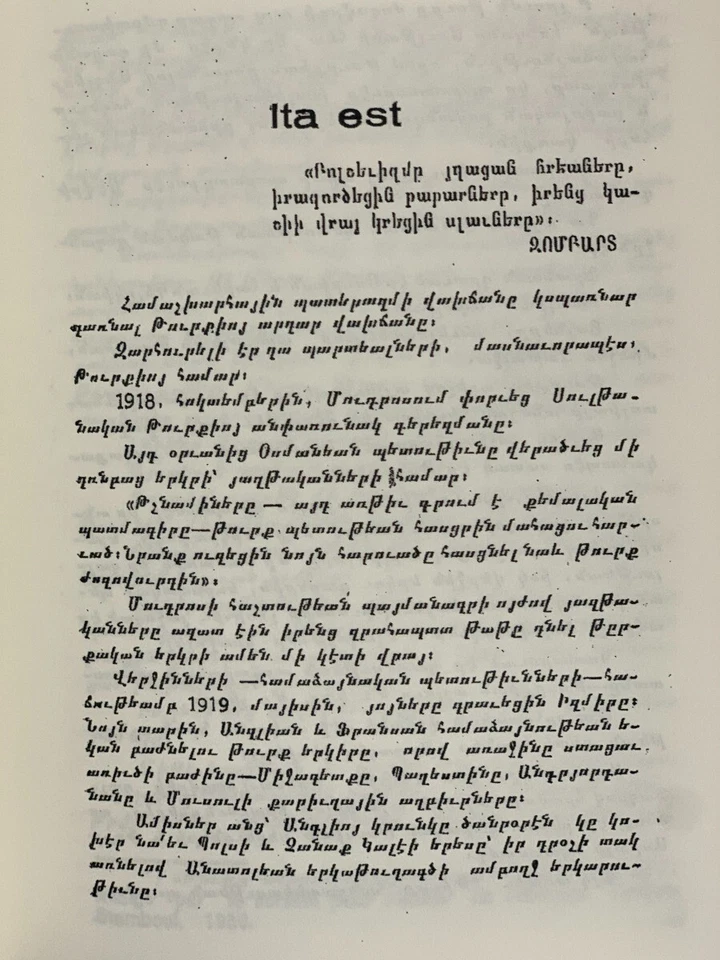 Ita est
«Բոլշեւիզմը յղացան հրեաները,
իրագործեցին բարբարները, իրենց կա-
շիի վրայ կրեցին սլաւները»։
ԶՈՄԲԱՐՏ
Համաշխարհային պատերազմի վախճանը կսպառնար
դառնալ Թուրքիոյ արդար վախճանը։
Զարհուրելի էր դա պարտեալների, մասնաւորապէս,
Թուրքիոյ համար։
1918, հոկտեմբերին, Մուդրոսում փորւեց Սուլթա-
նական Թուրքիոյ անփառունակ գերեզմանը։
Այդ օրւանից Օսմանեան պետութիւնը վերածւեց մի
դռնբաց երկրի՝ յաղթականների համար։
«Թշնամիները — այդ առթիւ գրում է քեմալական
պատմագիրը—թուրք պետութեան հասցրին մահացու հար-
ւած։ Նրանք ուզեցին նոյն հարուածը հասցնել նաև թուրք
ժողովուրդին»։
Մուդրոսի հաշտութեան պայմանագրի ոյժով յաղթա-
կանները ազատ էին իրենց զրահապատ թաթը դնել թըր-
քական երկրի ամեն մի կէտի վրայ։
Վերջինների —համաձայնական պետութիւնների—հա-
ճութեամբ 1919, մայիսին, յոյները գրաւեցին Իզմիրը։
Նոյն տարին, Անգլիան և Ֆրանսան համաձայնութեան ե-
կան բաժնելու թուրք երկիրը, որով առաջինը ստացաւ
առիւծի բաժինը—Միջագետքը, Պաղեստինը, Անդրյորդա-
նանը և Մուսուլի քարիւղային աղբիւրները։
Ամիսներ անց՝ Անգլիոյ կրունկը ծանրօրէն կը կո-
խէր նա՛եւ Պոլսի և Չանաք Կալէի երեսը՝ իր դրօշի տակ
առնելով Անատոլեան երկաթուղագծի ամբողջ երկարու-
թիւնը։